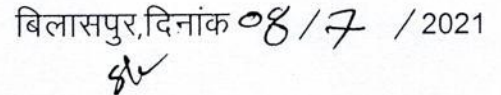 बिलासपुर,दिनांक 08/7 /2021